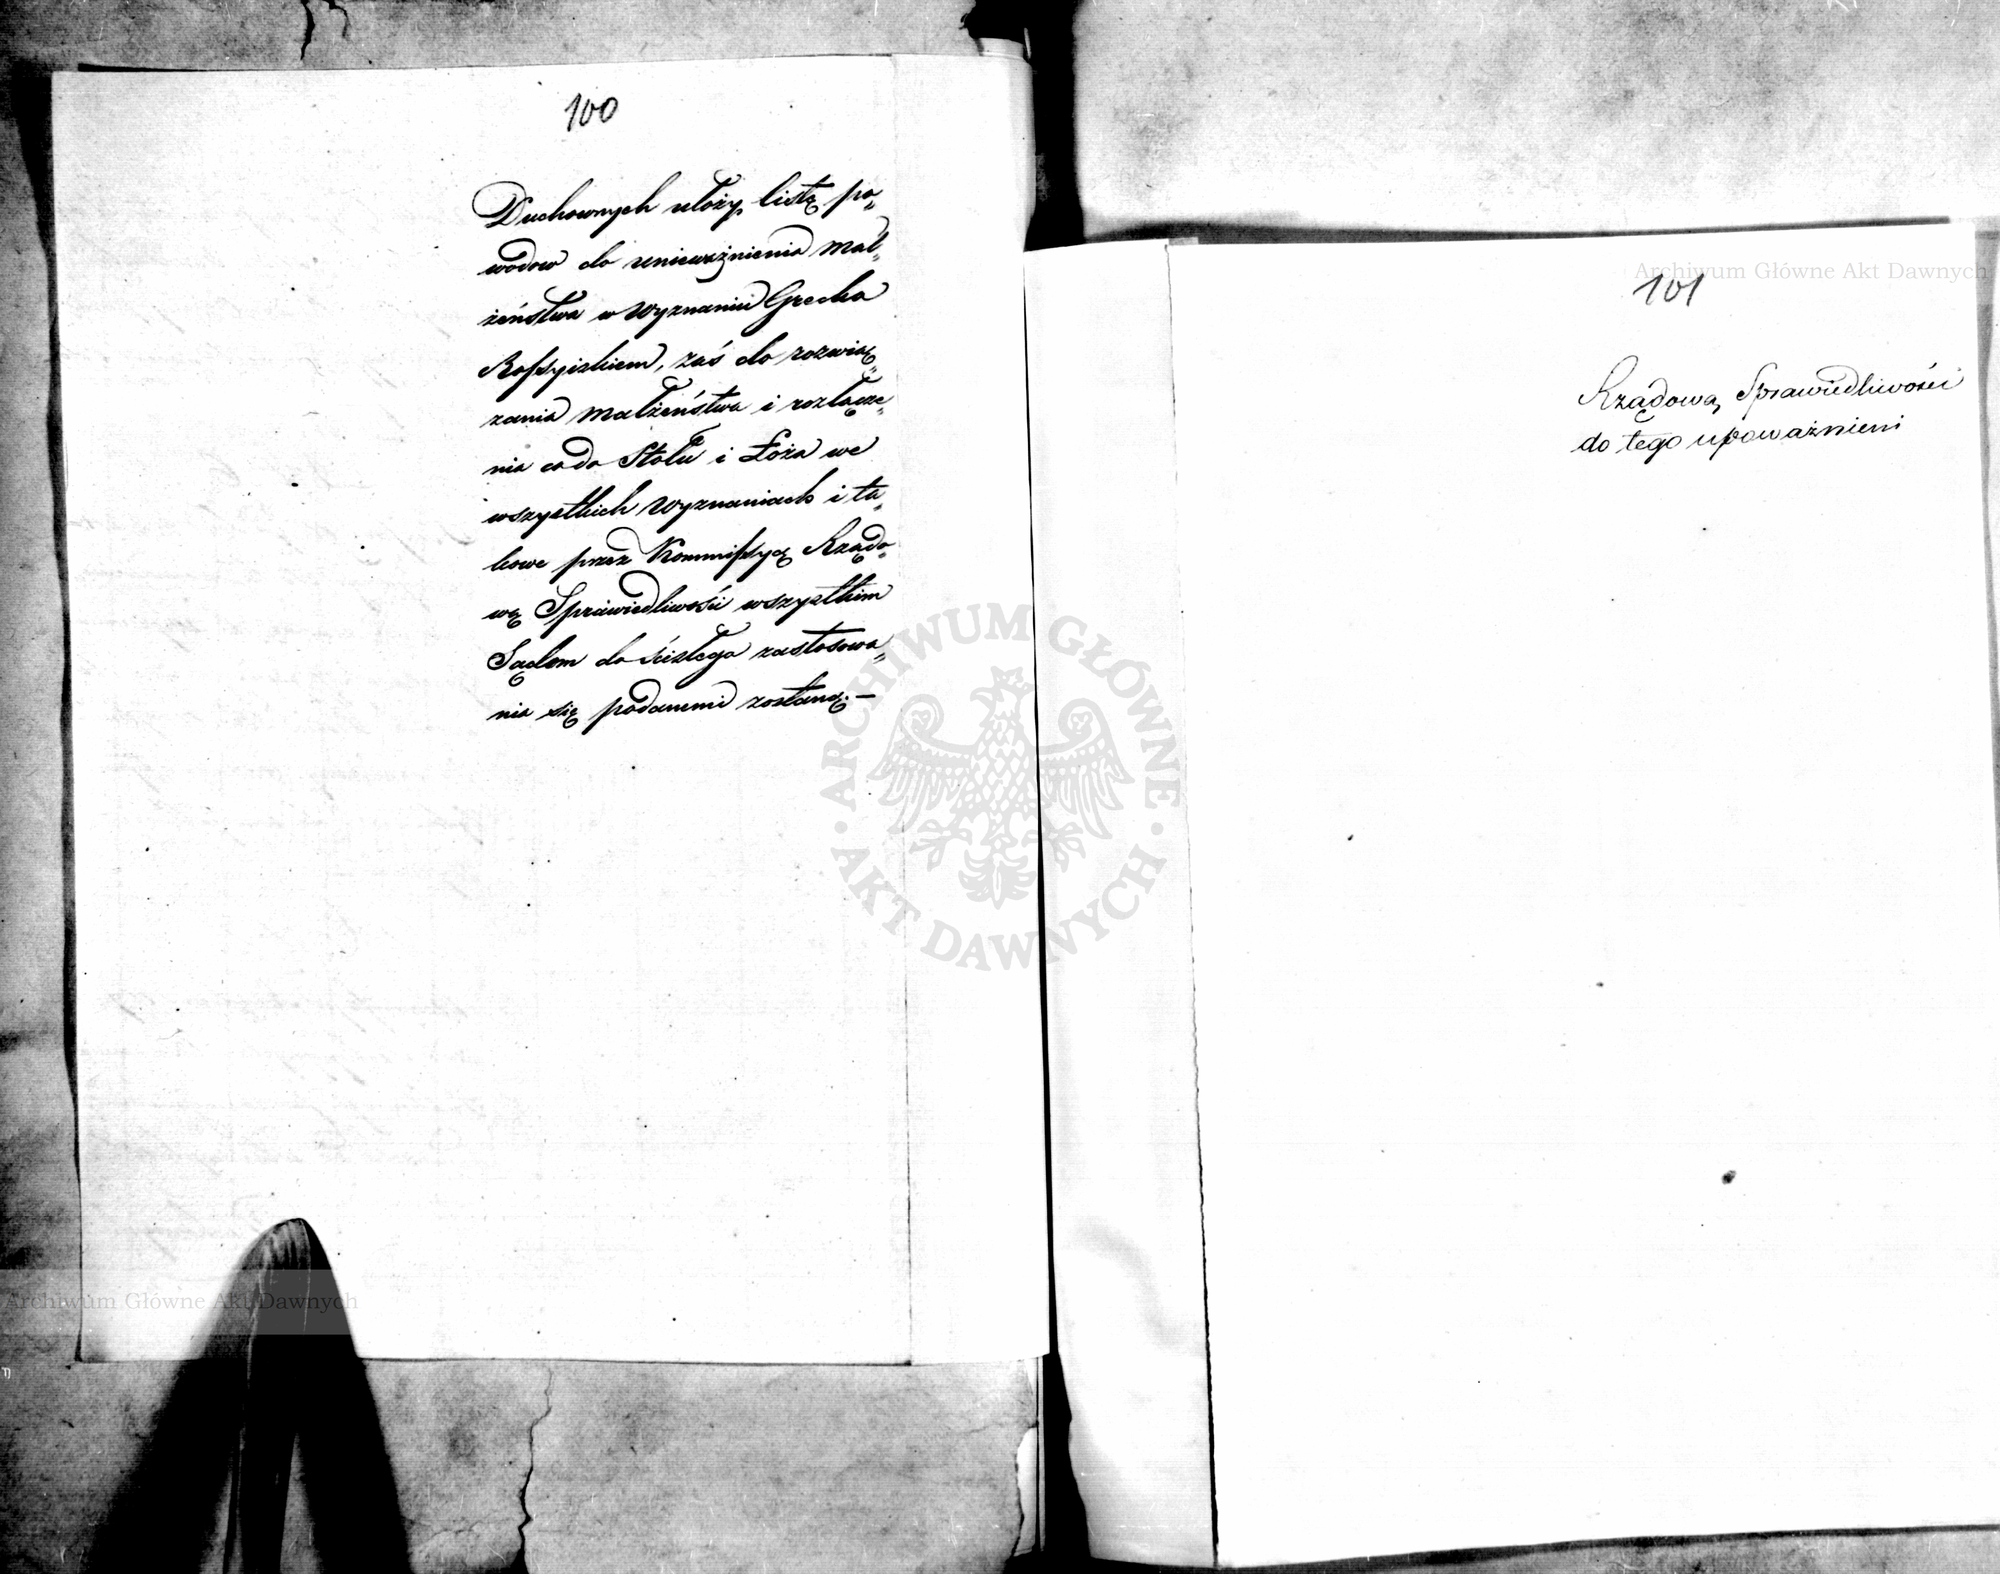 100
Duchownych ułoży listę po„
wodow do unieważnienia mał„
żeństwa w Wyznaniu Grecko
Rossyiskiem, zaś do rozwią„
zania małżeństwa i rozłącze„
nia co do Stołu i Łoża we
wszystkich Wyznaniach i ta„
kowe przez Kommissyą Rządo„
wą Sprawiedliwości wszystkim
Sądom do ścisłego zastosowa„
nia się podanemi zostaną. —
101
Rządową Sprawiedliwości
do tego upoważnieni
ARCHIWUM GŁÓWNE
AKT DAWNYCH
Archiwum Główne Akt Dawnych
Archiwum Główne Akt Dawnych